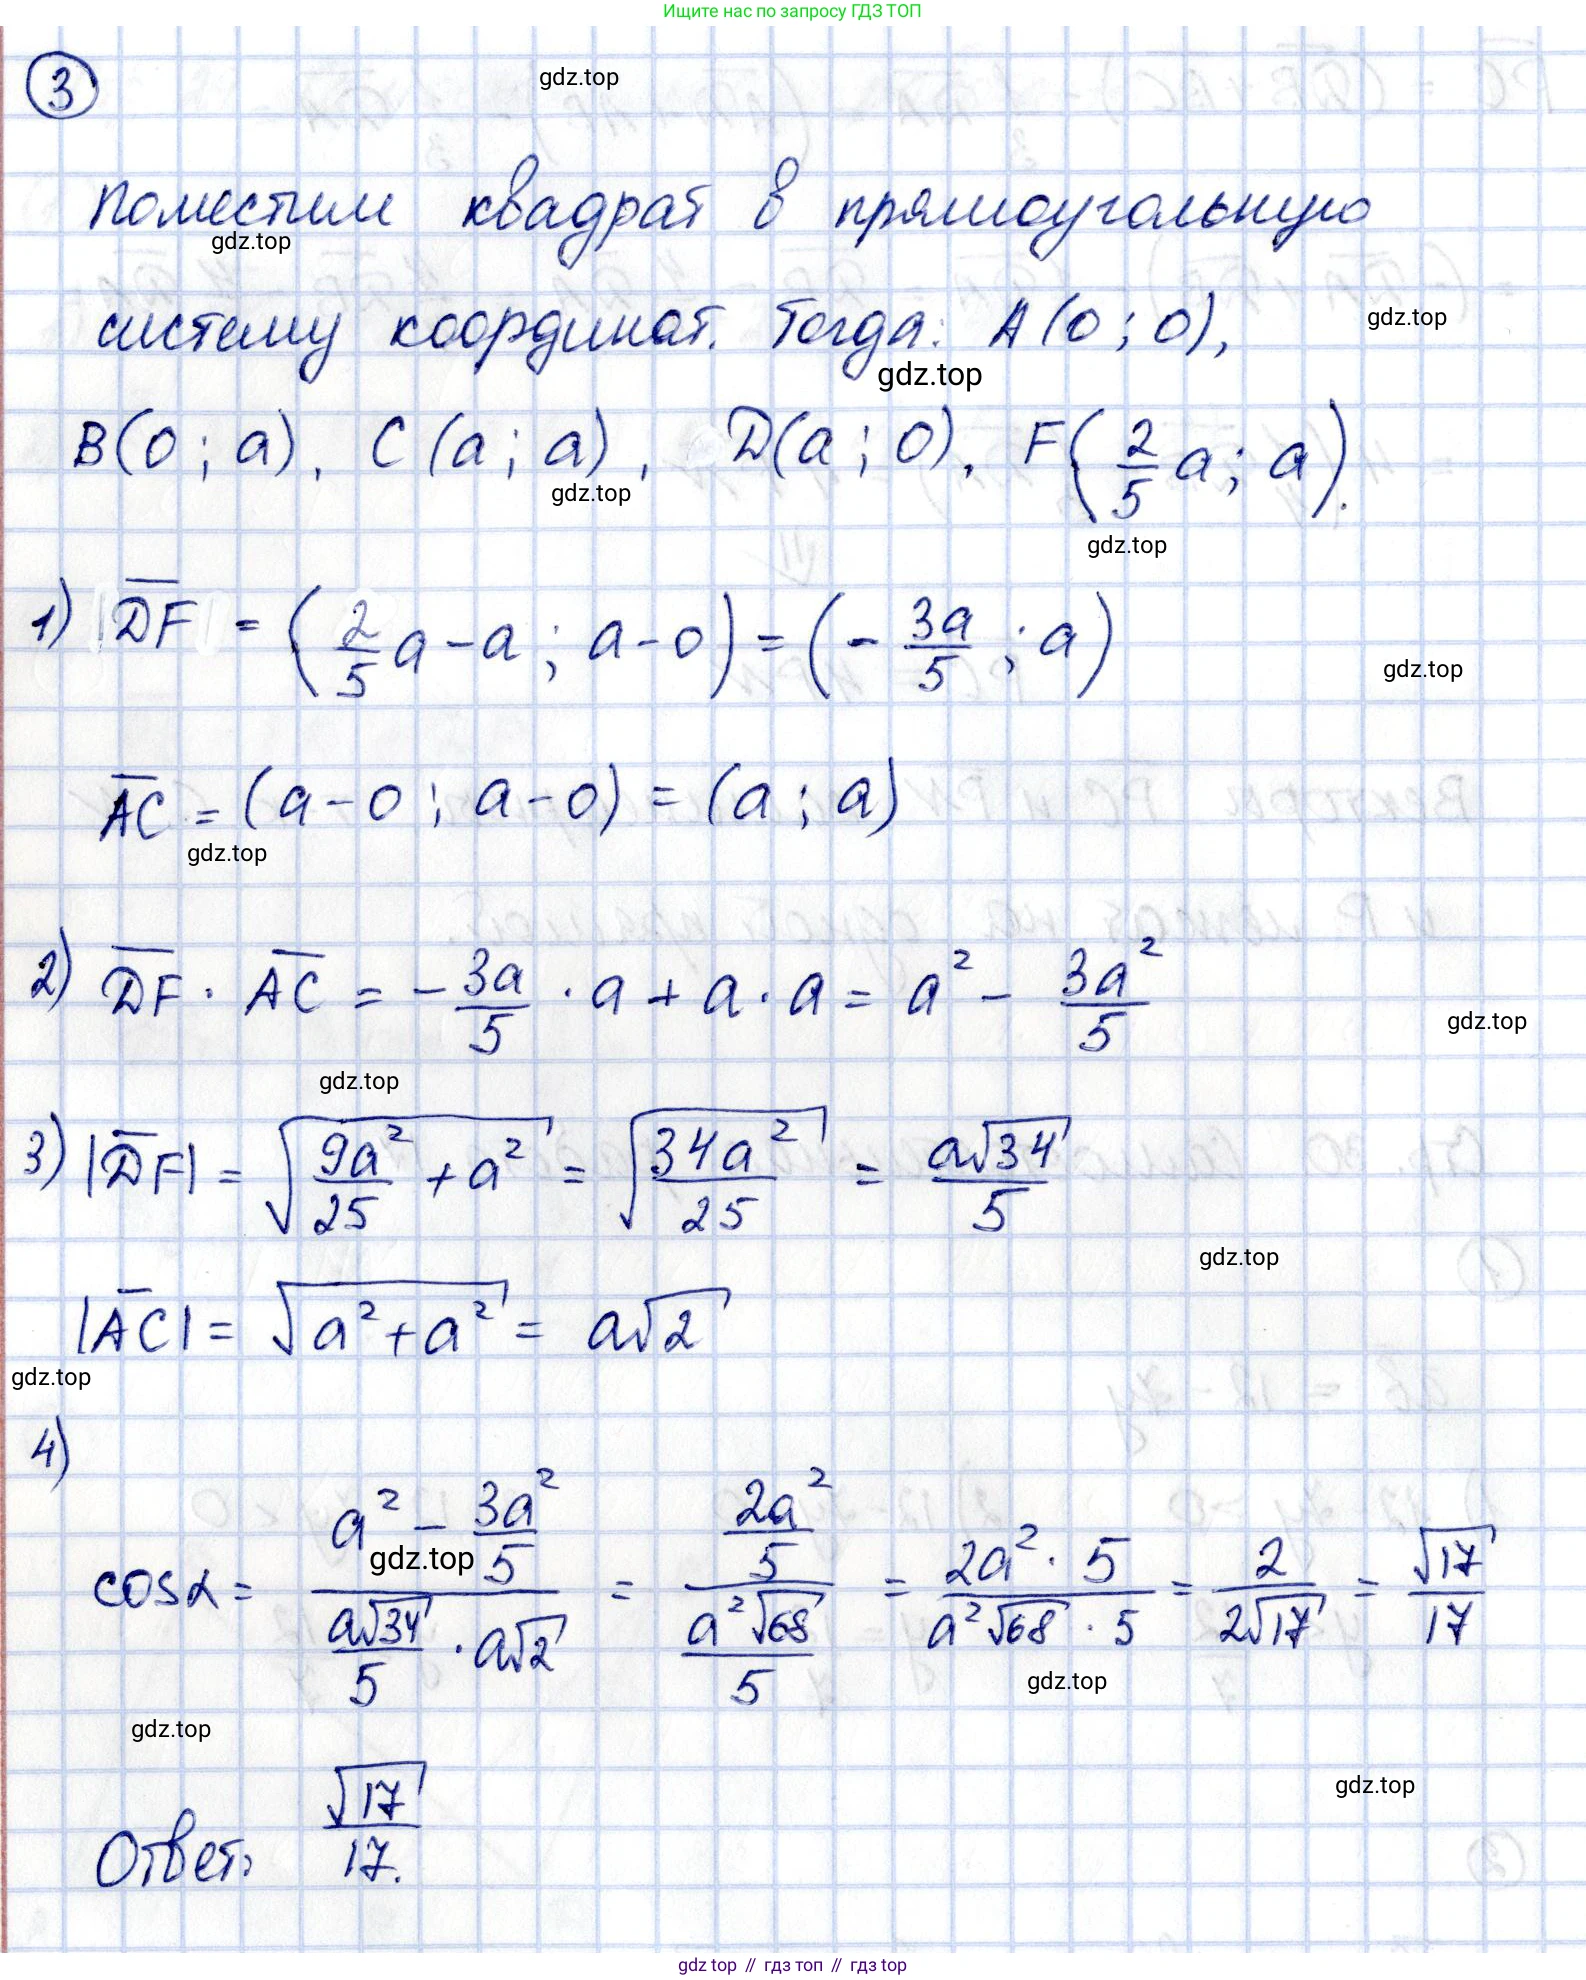 Ищите нас по запросу ГДЗ ТОП
3
gdz.top
Поместим квадрат в прямоугольную
gdz.top
систему координат. Тогда: A(0; 0),
gdz.top
gdz.top
B(0; a), C(a; a), D(a; 0), F(2/5 a; a).
gdz.top
gdz.top
1) |D̅F̅| = (2/5 a - a; a - 0) = (-3a/5; a)
gdz.top
A̅C̅ = (a - 0; a - 0) = (a; a)
gdz.top
2) D̅F̅ · A̅C̅ = -3a/5 · a + a · a = a² - 3a²/5
gdz.top
gdz.top
3) |D̅F̅| = √(9a²/25 + a²) = √(34a²/25) = a√34/5
gdz.top
|A̅C̅| = √(a² + a²) = a√2
gdz.top
4)
cos α = (a² - 3a²/5)/(a√34/5 · a√2) = (2a²/5)/(a²√68/5) = 2a² · 5/(a²√68 · 5) = 2/(2√17) = √17/17
gdz.top
gdz.top
gdz.top
gdz.top
Ответ: √17/17.
gdz top // гдз топ // гдз top